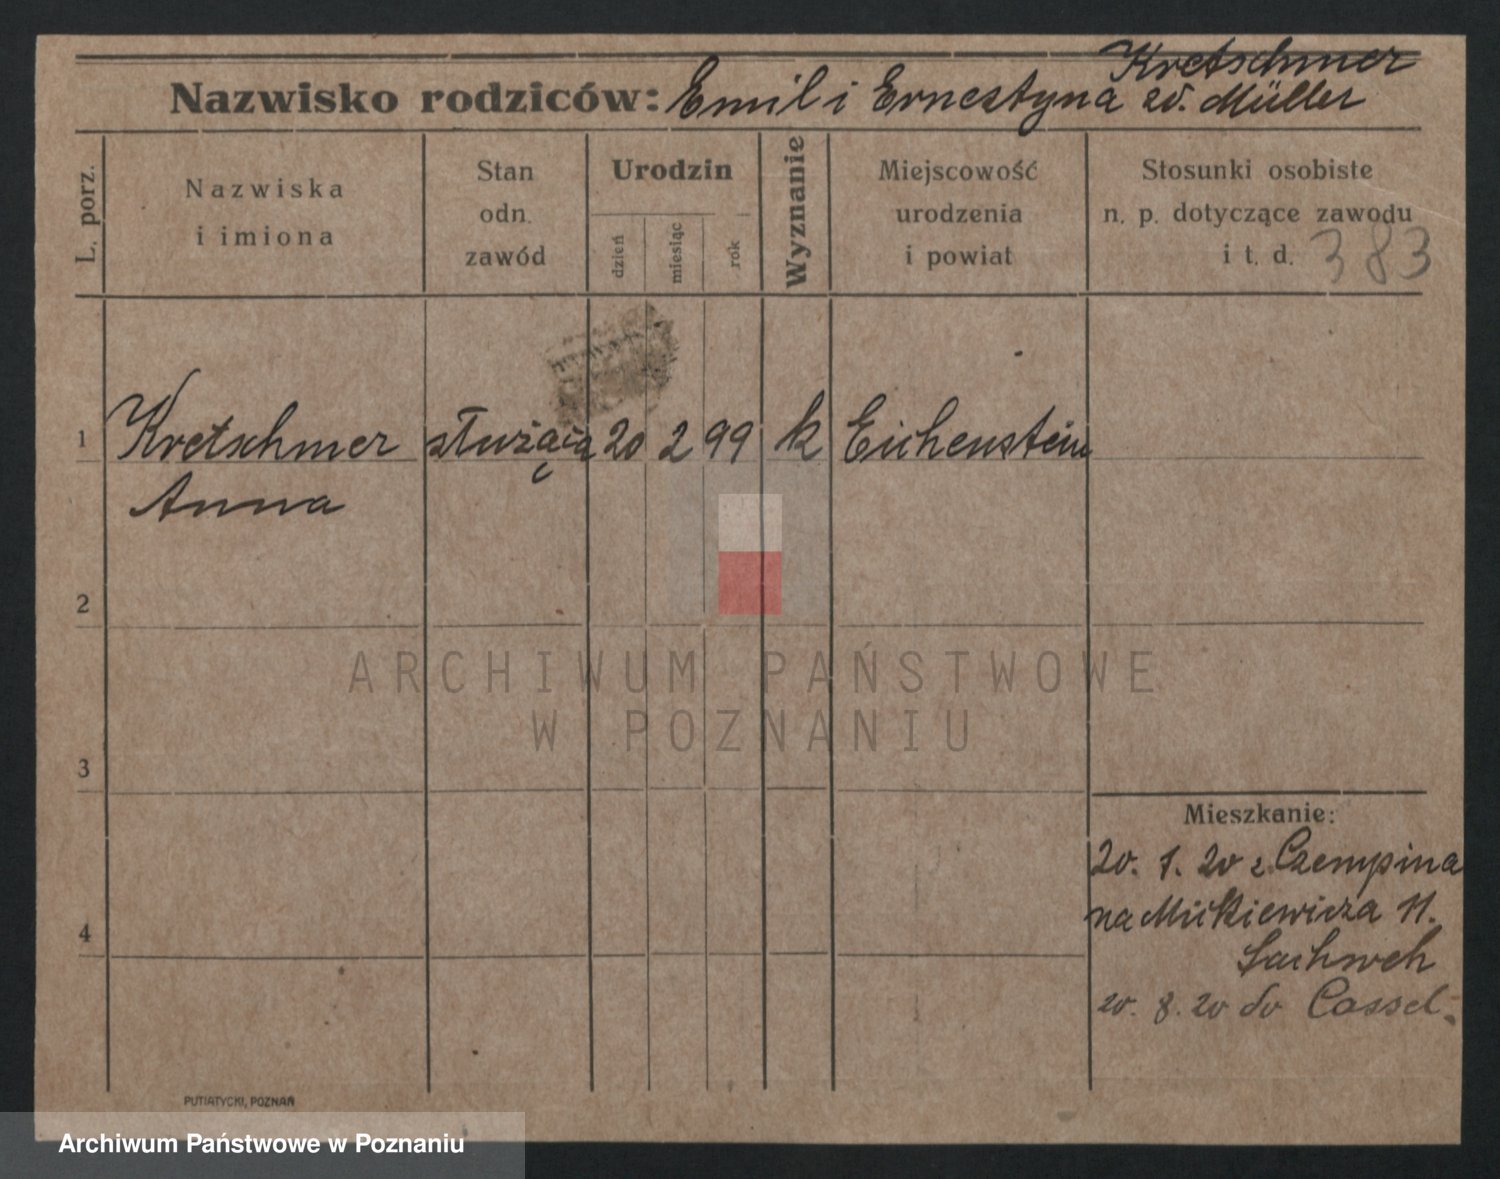 Kretschmer
Nazwisko rodziców: Emil i Ernestyna zd. Müller
L. porz.
Nazwiska
i imiona
Stan
odn.
zawód
Urodzin
dzień
miesiąc
rok
Wyznanie
Miejscowość
urodzenia
i powiat
Stosunki osobiste
n. p. dotyczące zawodu
i t. d.
383
1
Kretschmer
Anna
służąca
20
2
99
k
Eichenstein
2
3
4
ARCHIWUM PAŃSTWOWE
W POZNANIU
Mieszkanie:
20. 1. 20 z Czempina
na Mickiewicza 11.
Sachweh
20. 8. 20 do Cassel.
PUTIATYCKI, POZNAŃ
Archiwum Państwowe w Poznaniu